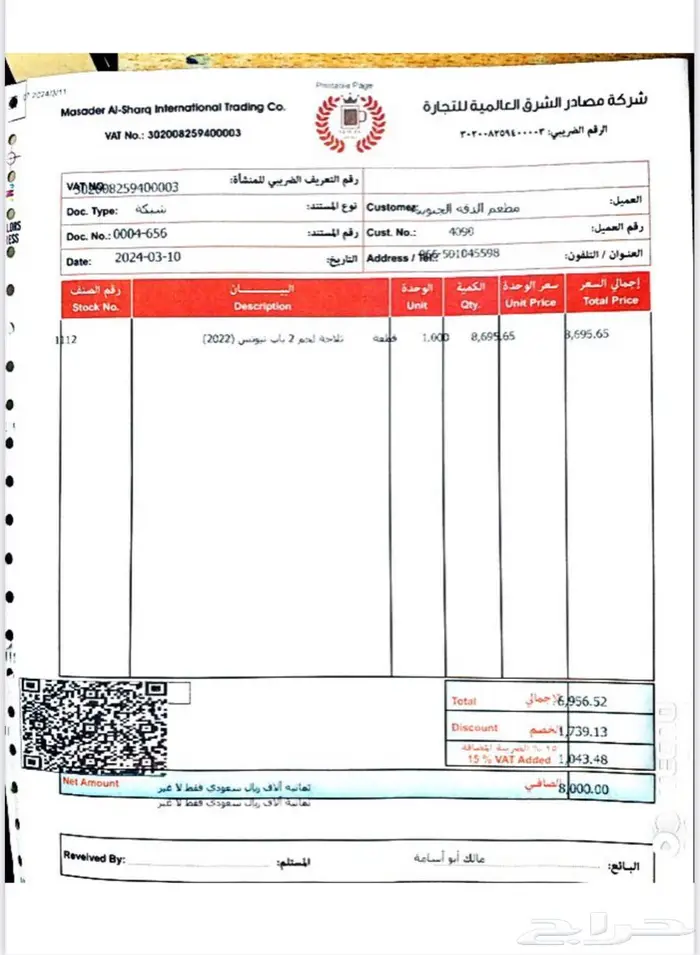 Printable Page
2024/3/11
Masader Al-Sharq International Trading Co.
شركة مصادر الشرق العالمية للتجارة
VAT No.: 302008259400003
الرقم الضريبي: ٣٠٢٠٠٨٢٥٩٤٠٠٠٠٣
VAT NO 302008259400003 رقم التعريف الضريبي للمنشأة:
Doc. Type: شبكة نوع المستند: Customer: مطعم الدفه العميل:
Doc. No.: 0004-656 رقم المستند: Cust. No.: 4098 رقم العميل:
Date: 2024-03-10 التاريخ: Address / Tel.: 966-501045598 العنوان / التلفون:
رقم الصنف البيـــــــان الوحدة الكمية سعر الوحدة إجمالي السعر
Stock No. Description Unit Qty. Unit Price Total Price
1112 ثلاجة لحم 2 باب نيوتس (2022) قطعة 1.000 8,695.65 8,695.65
Total الاجمالي 6,956.52
Discount الخصم 1,739.13
١٥ % الضريبة المضافة
15 % VAT Added 1,043.48
Net Amount ثمانية آلاف ريال سعودي فقط لا غير الصافي 8,000.00
ثمانية آلاف ريال سعودي فقط لا غير
Reveived By: المستلم: مالك أبو أسامة البائع:
حراج